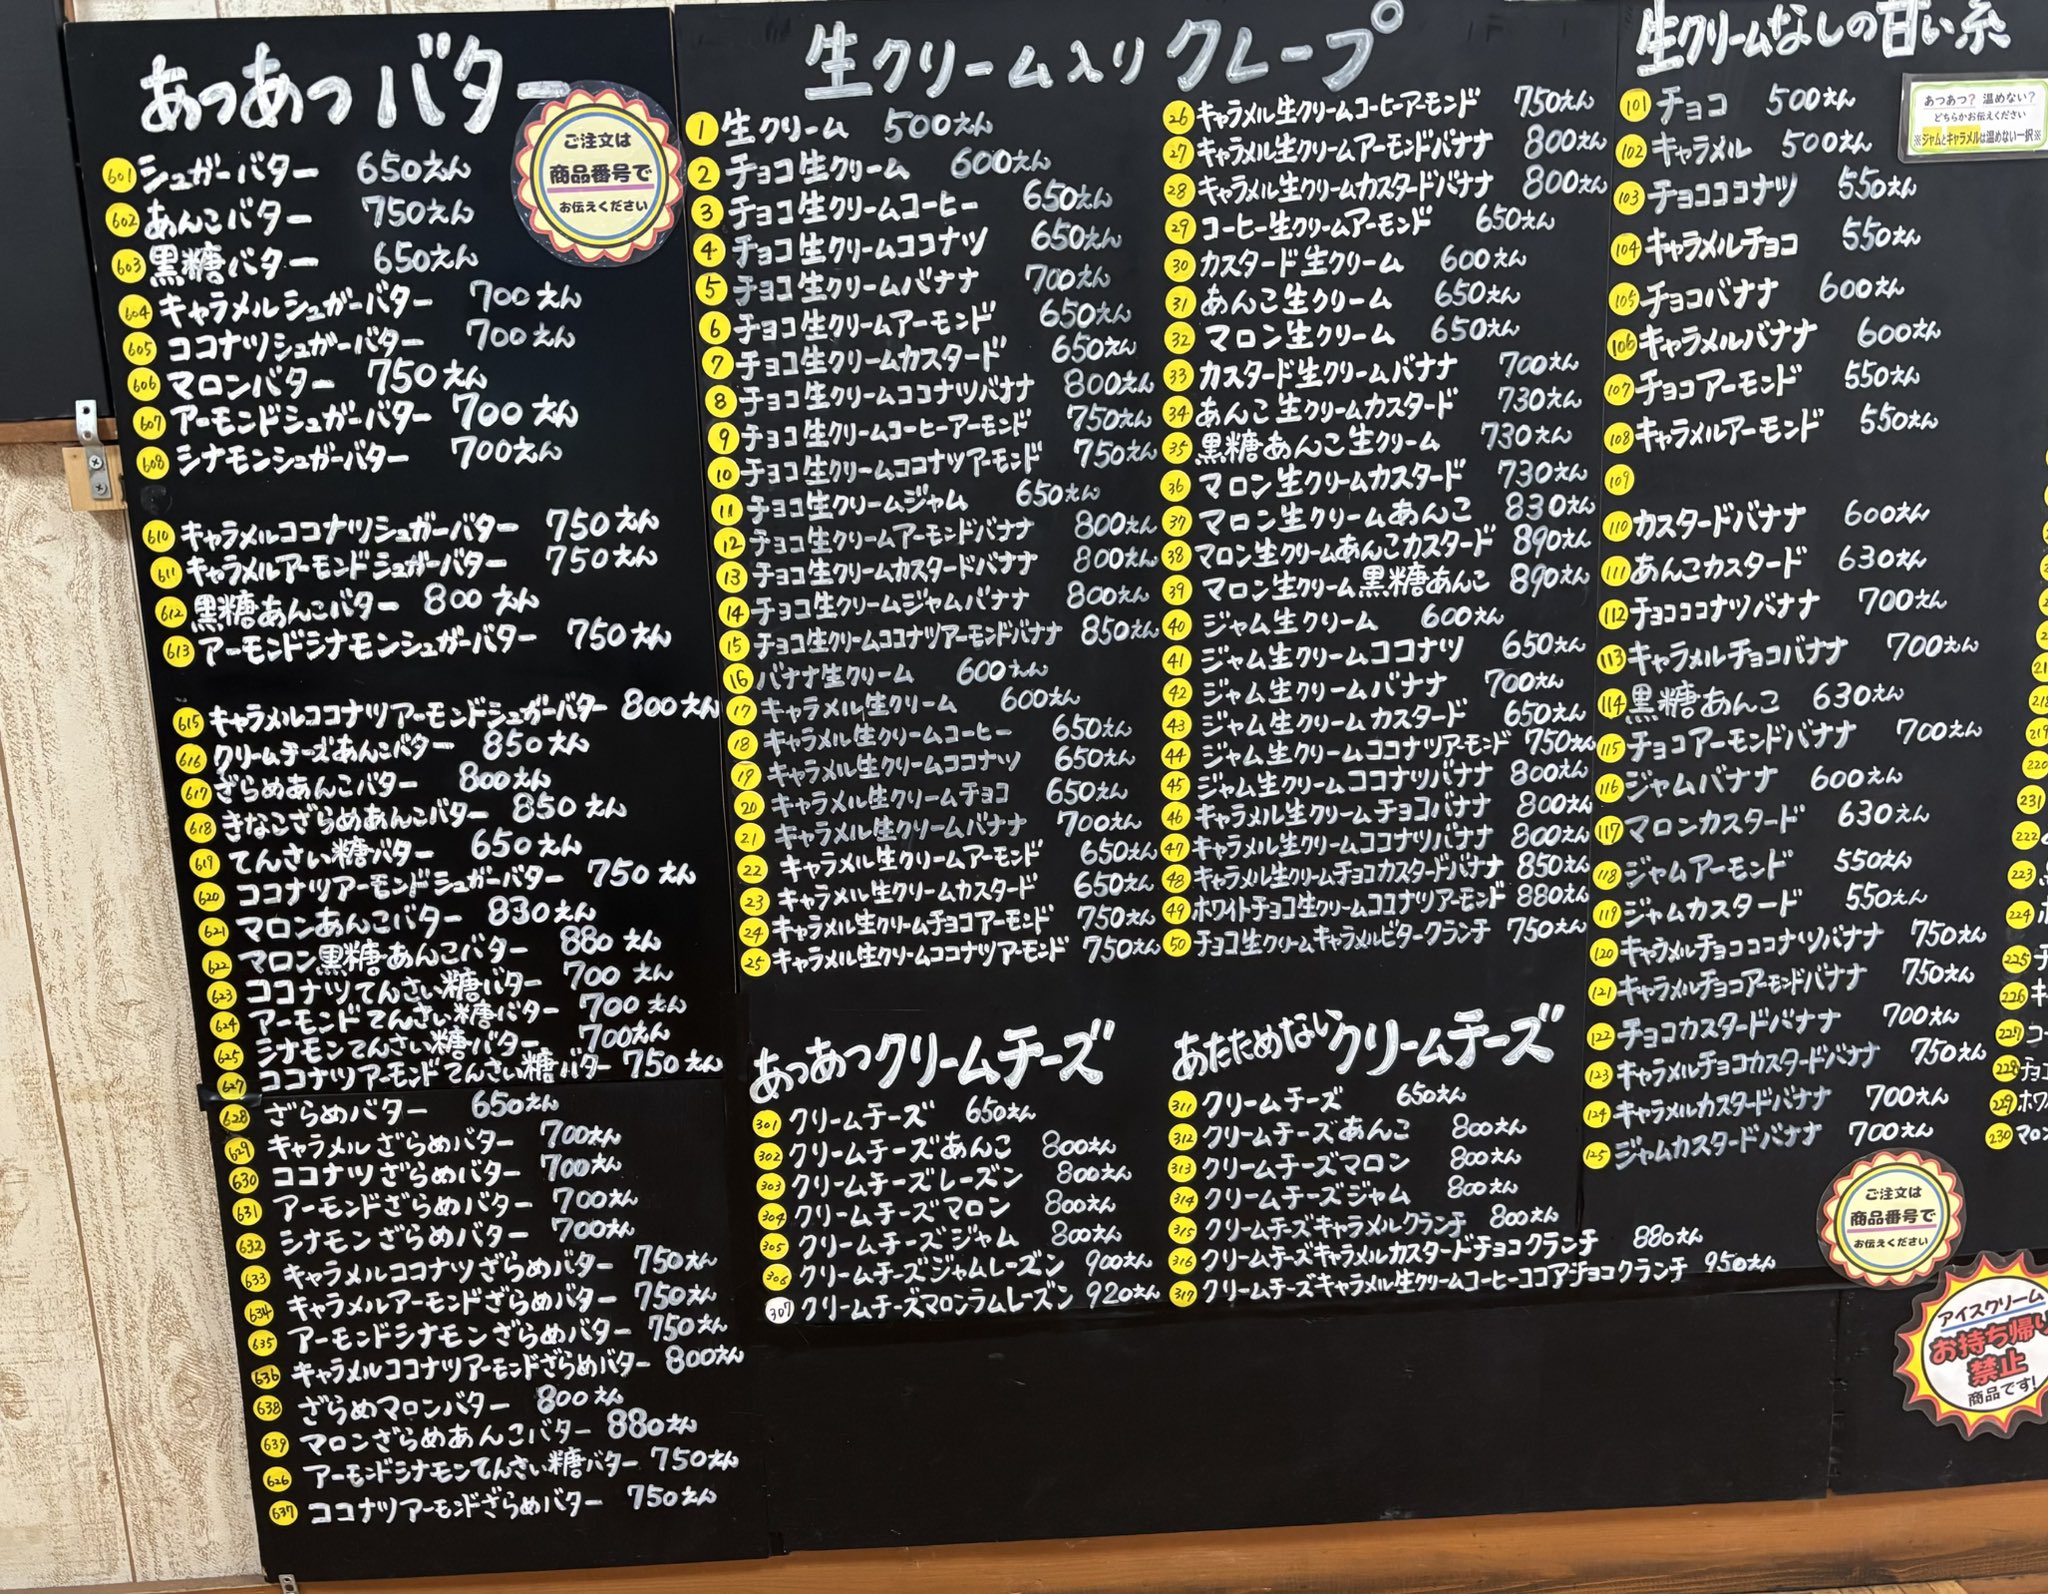 あつあつバター
ご注文は
商品番号で
お伝えください
601 シュガーバター 650えん
602 あんこバター 750えん
603 黒糖バター 650えん
604 キャラメルシュガーバター 700えん
605 ココナツシュガーバター 700えん
606 マロンバター 750えん
607 アーモンドシュガーバター 700えん
608 シナモンシュガーバター 700えん
610 キャラメルココナツシュガーバター 750えん
611 キャラメルアーモンドシュガーバター 750えん
612 黒糖あんこバター 800えん
613 アーモンドシナモンシュガーバター 750えん
615 キャラメルココナツアーモンドシュガーバター 800えん
616 クリームチーズあんこバター 850えん
617 ざらめあんこバター 800えん
618 きなこざらめあんこバター 850えん
619 てんさい糖バター 650えん
620 ココナツアーモンドシュガーバター 750えん
621 マロンあんこバター 830えん
622 マロン黒糖あんこバター 880えん
623 ココナツてんさい糖バター 700えん
624 アーモンドてんさい糖バター 700えん
625 シナモンてんさい糖バター 700えん
627 ココナツアーモンドてんさい糖バター 750えん
628 ざらめバター 650えん
629 キャラメルざらめバター 700えん
630 ココナツざらめバター 700えん
631 アーモンドざらめバター 700えん
632 シナモンざらめバター 700えん
633 キャラメルココナツざらめバター 750えん
634 キャラメルアーモンドざらめバター 750えん
635 アーモンドシナモンざらめバター 750えん
636 キャラメルココナツアーモンドざらめバター 800えん
638 ざらめマロンバター 800えん
639 マロンざらめあんこバター 880えん
626 アーモンドシナモンてんさい糖バター 750えん
637 ココナツアーモンドざらめバター 750えん
生クリーム入りクレープ
1 生クリーム 500えん
2 チョコ生クリーム 600えん
3 チョコ生クリームコーヒー 650えん
4 チョコ生クリームココナツ 650えん
5 チョコ生クリームバナナ 700えん
6 チョコ生クリームアーモンド 650えん
7 チョコ生クリームカスタード 650えん
8 チョコ生クリームココナツバナナ 800えん
9 チョコ生クリームコーヒーアーモンド 750えん
10 チョコ生クリームココナツアーモンド 750えん
11 チョコ生クリームジャム 650えん
12 チョコ生クリームアーモンドバナナ 800えん
13 チョコ生クリームカスタードバナナ 800えん
14 チョコ生クリームジャムバナナ 800えん
15 チョコ生クリームココナツアーモンドバナナ 850えん
16 バナナ生クリーム 600えん
17 キャラメル生クリーム 600えん
18 キャラメル生クリームコーヒー 650えん
19 キャラメル生クリームココナツ 650えん
20 キャラメル生クリームチョコ 650えん
21 キャラメル生クリームバナナ 700えん
22 キャラメル生クリームアーモンド 650えん
23 キャラメル生クリームカスタード 650えん
24 キャラメル生クリームチョコアーモンド 750えん
25 キャラメル生クリームココナツアーモンド 750えん
26 キャラメル生クリームコーヒーアーモンド 750えん
27 キャラメル生クリームアーモンドバナナ 800えん
28 キャラメル生クリームカスタードバナナ 800えん
29 コーヒー生クリームアーモンド 650えん
30 カスタード生クリーム 600えん
31 あんこ生クリーム 650えん
32 マロン生クリーム 650えん
33 カスタード生クリームバナナ 700えん
34 あんこ生クリームカスタード 730えん
35 黒糖あんこ生クリーム 730えん
36 マロン生クリームカスタード 730えん
37 マロン生クリームあんこ 830えん
38 マロン生クリームあんこカスタード 890えん
39 マロン生クリーム黒糖あんこ 890えん
40 ジャム生クリーム 600えん
41 ジャム生クリームココナツ 650えん
42 ジャム生クリームバナナ 700えん
43 ジャム生クリームカスタード 650えん
44 ジャム生クリームココナツアーモンド 750えん
45 ジャム生クリームココナツバナナ 800えん
46 キャラメル生クリームチョコバナナ 800えん
47 キャラメル生クリームココナツバナナ 800えん
48 キャラメル生クリームチョコカスタードバナナ 850えん
49 ホワイトチョコ生クリームココナツアーモンド 880えん
50 チョコ生クリームキャラメルビタークランチ 750えん
あつあつクリームチーズ
301 クリームチーズ 650えん
302 クリームチーズあんこ 800えん
303 クリームチーズレーズン 800えん
304 クリームチーズマロン 800えん
305 クリームチーズジャム 800えん
306 クリームチーズジャムレーズン 900えん
307 クリームチーズマロンラムレーズン 920えん
あたためないクリームチーズ
311 クリームチーズ 650えん
312 クリームチーズあんこ 800えん
313 クリームチーズマロン 800えん
314 クリームチーズジャム 800えん
315 クリームチーズキャラメルクランチ 800えん
316 クリームチーズキャラメルカスタードチョコクランチ 880えん
317 クリームチーズキャラメル生クリームコーヒーココアチョコクランチ 950えん
生クリームなしの甘い系
あつあつ? 温めない?
どちらかお伝えください
※ジャムとキャラメルは温めない一択※
101 チョコ 500えん
102 キャラメル 500えん
103 チョコココナツ 550えん
104 キャラメルチョコ 550えん
105 チョコバナナ 600えん
106 キャラメルバナナ 600えん
107 チョコアーモンド 550えん
108 キャラメルアーモンド 550えん
109
110 カスタードバナナ 600えん
111 あんこカスタード 630えん
112 チョコココナツバナナ 700えん
113 キャラメルチョコバナナ 700えん
114 黒糖あんこ 630えん
115 チョコアーモンドバナナ 700えん
116 ジャムバナナ 600えん
117 マロンカスタード 630えん
118 ジャムアーモンド 550えん
119 ジャムカスタード 550えん
120 キャラメルチョコココナツバナナ 750えん
121 キャラメルチョコアーモンドバナナ 750えん
122 チョコカスタードバナナ 700えん
123 キャラメルチョコカスタードバナナ 750えん
124 キャラメルカスタードバナナ 700えん
125 ジャムカスタードバナナ 700えん
ご注文は
商品番号で
お伝えください
219
220
231
222
223
224
225 チ
226 キ
227 コー
228 チョコ
229 ホワ
230 マロン
アイスクリーム
お持ち帰り
禁止
商品です!